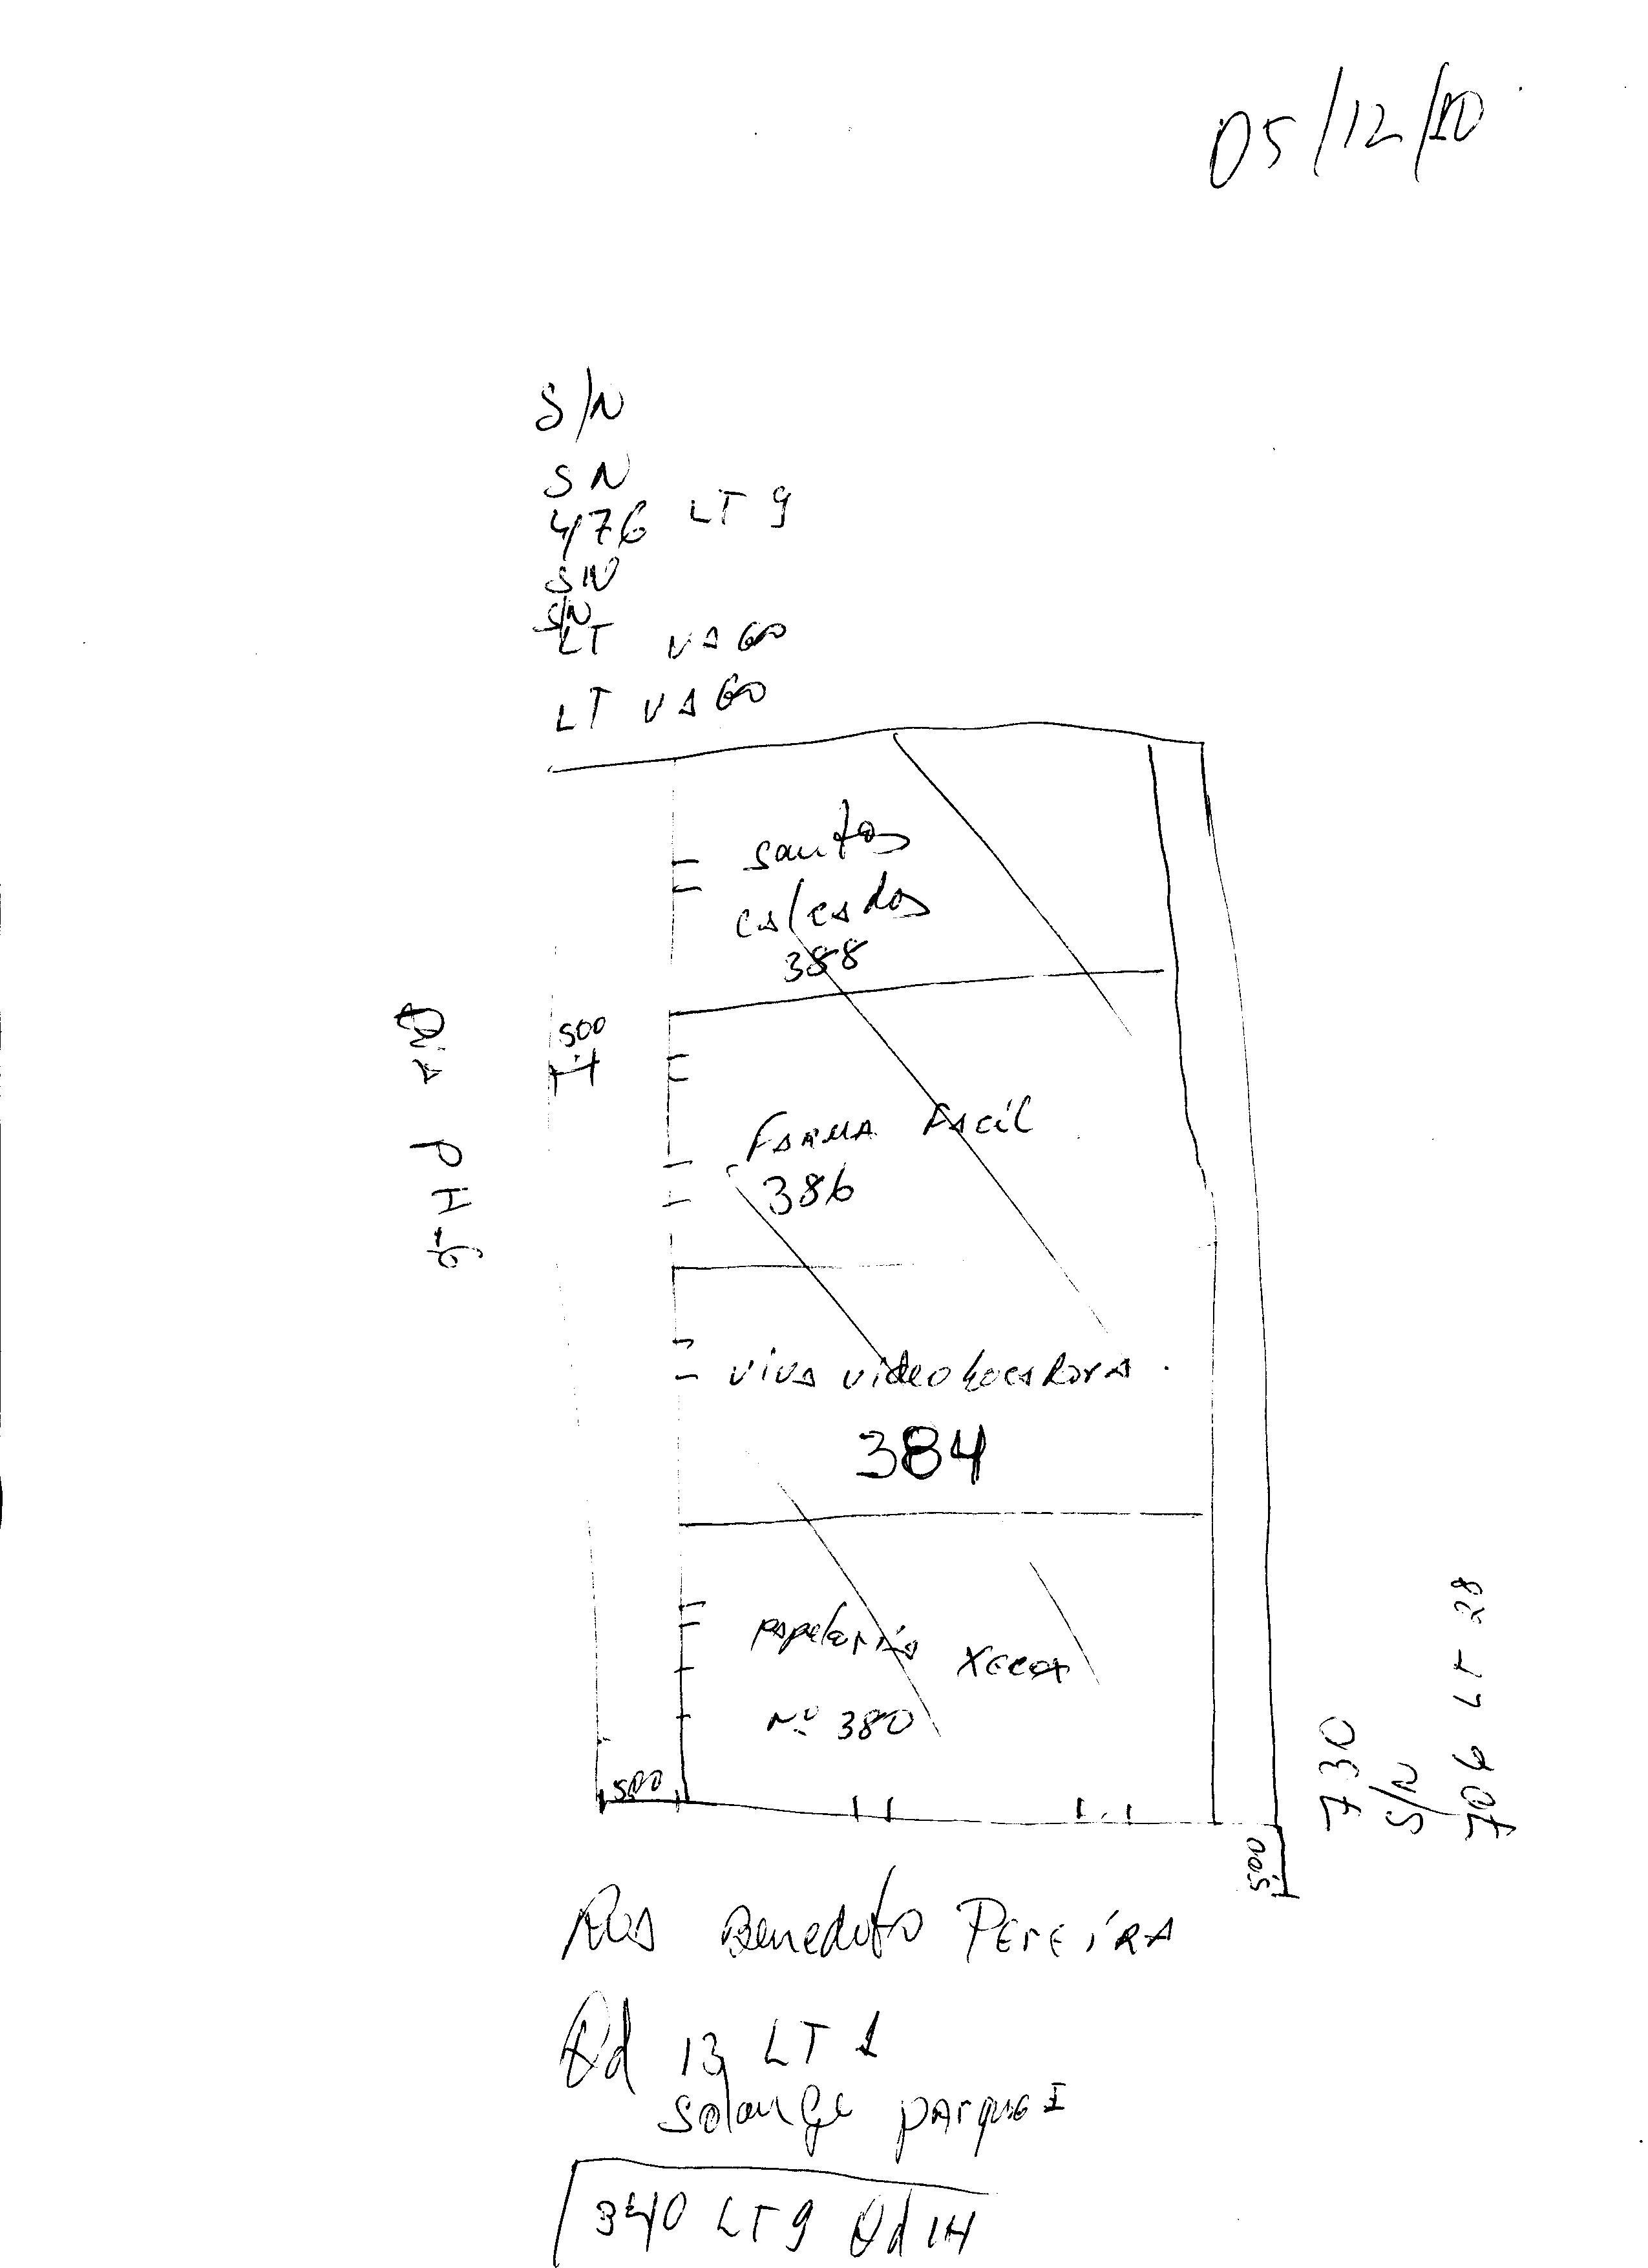 05/12/10
S/N
SN
476 LT 9
SN
S/N
LT VAGO
LT VAGO
santos
calcados
388
500
Farma Facil
386
PH-9
viva videolocadora
384
papelaria Xerox
Nº 380
500
500
730
S/N
706 LT 28
Rua Benedito Pereira
Qd 13 LT 1
Solange parque I
340 LT 9 Qd 14